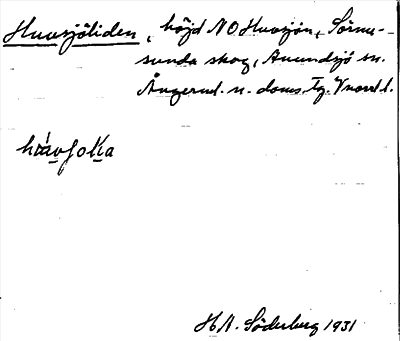 Huvsjöliden, höjd NO Huvsjön, Sörnu-
sunda skog, Anundsjö sn.
Ångerml. n. doms. tg. Vnorrl l.
H. A. Söderberg 1931